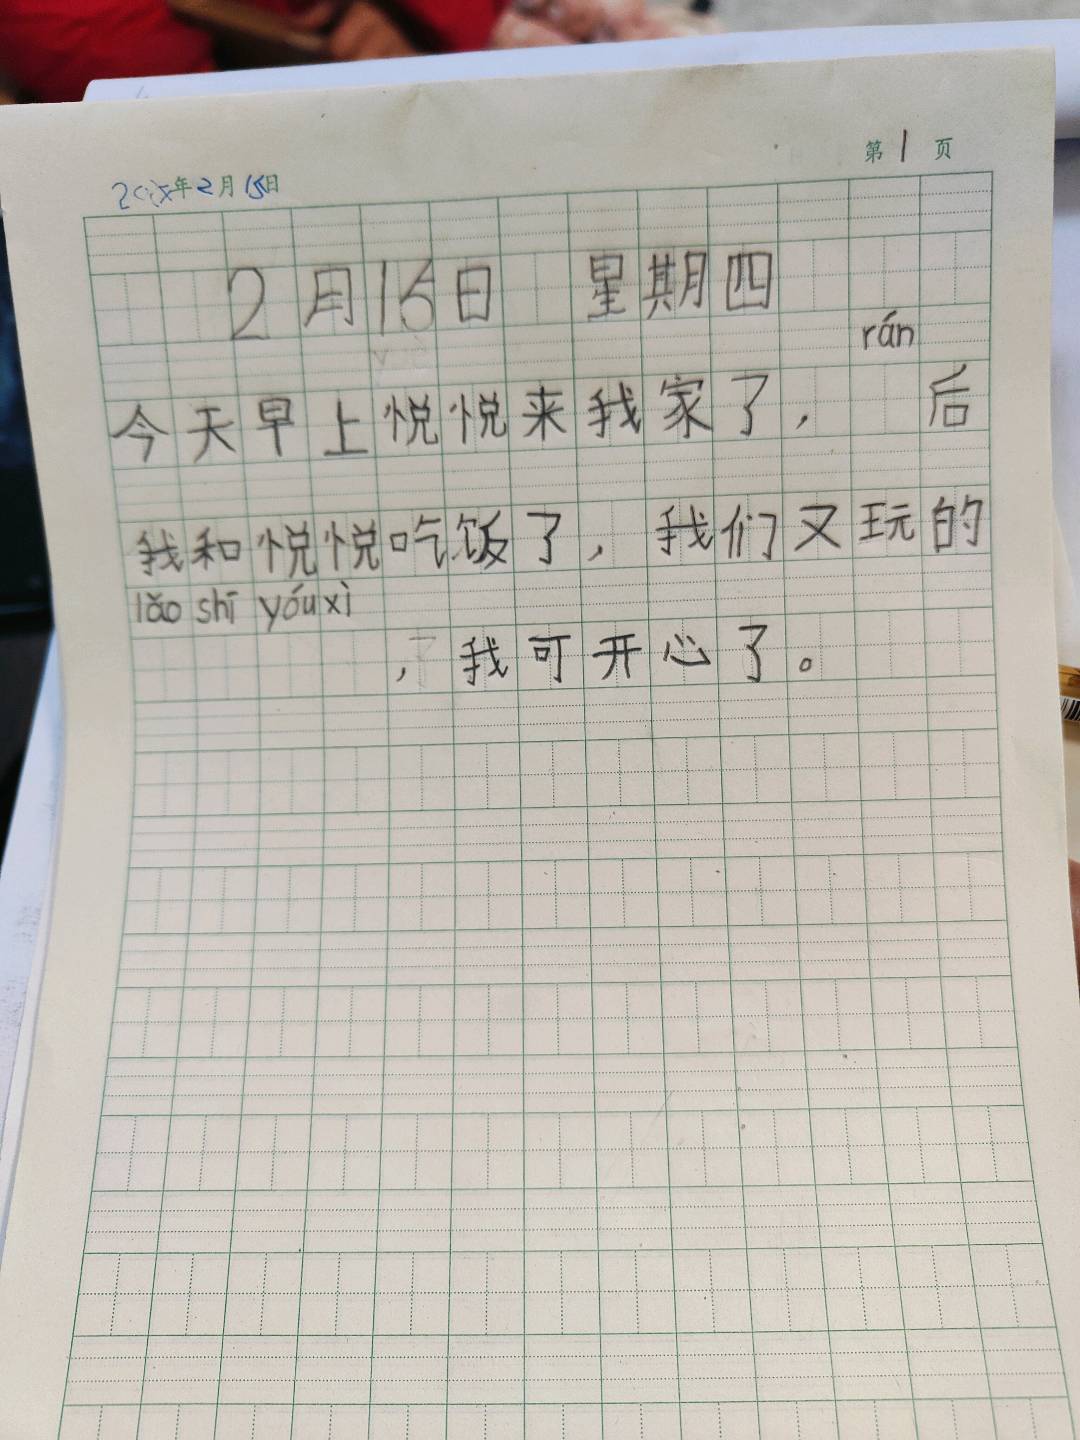 第1页
年2月15日
2月16日 星期四
rán
今天早上悦悦来我家了, 后
我和悦悦吃饭了,我们又玩的
lǎo shī yóu xì
,我可开心了。